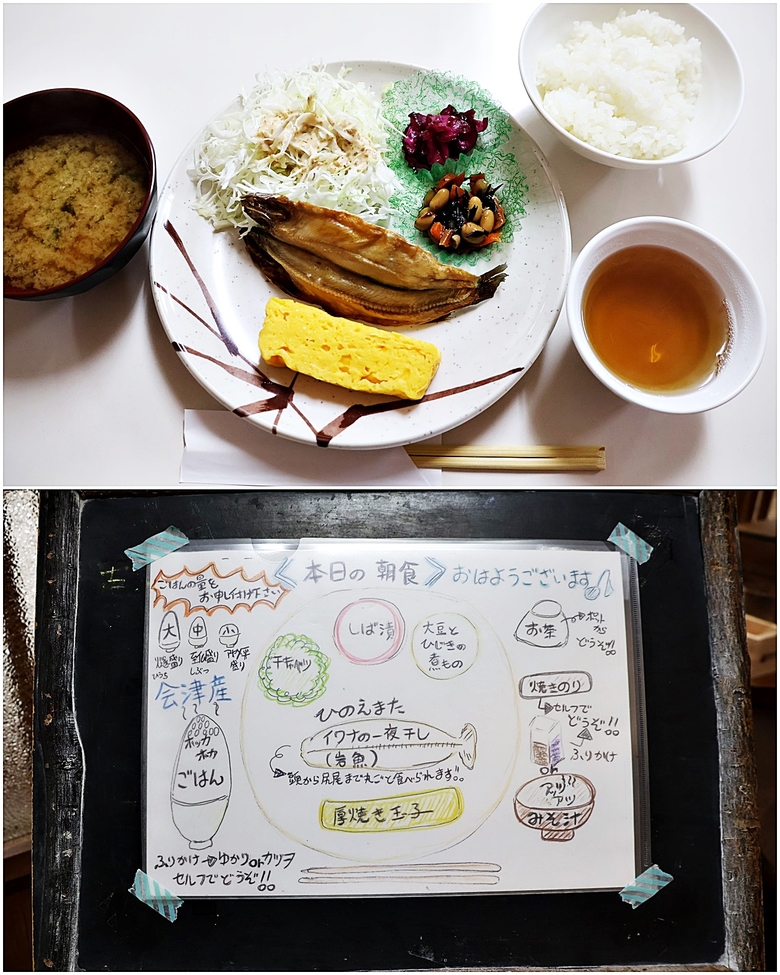 《本日の朝食》 おはようございます
ごはんの量を
お申し付け下さい
大 中 小
燧盛り
ひうち
至仏盛り
しぶつ
アヤメ平
盛り
会津産
ホッカ
ホカ
ごはん
千キャベツ
しば漬
大豆と
ひじきの
煮もの
ひのえまた
イワナの一夜干し
(岩魚)
頭から尻尾まで丸ごと食べられます!!
厚焼き玉子
お茶
ポット
から
どうぞ!!
焼きのり
セルフで
どうぞ!!
ふりかけ
or
アッツ
アツ
みそ汁
ふりかけ⇒ゆかりorカツヲ
セルフでどうぞ!!